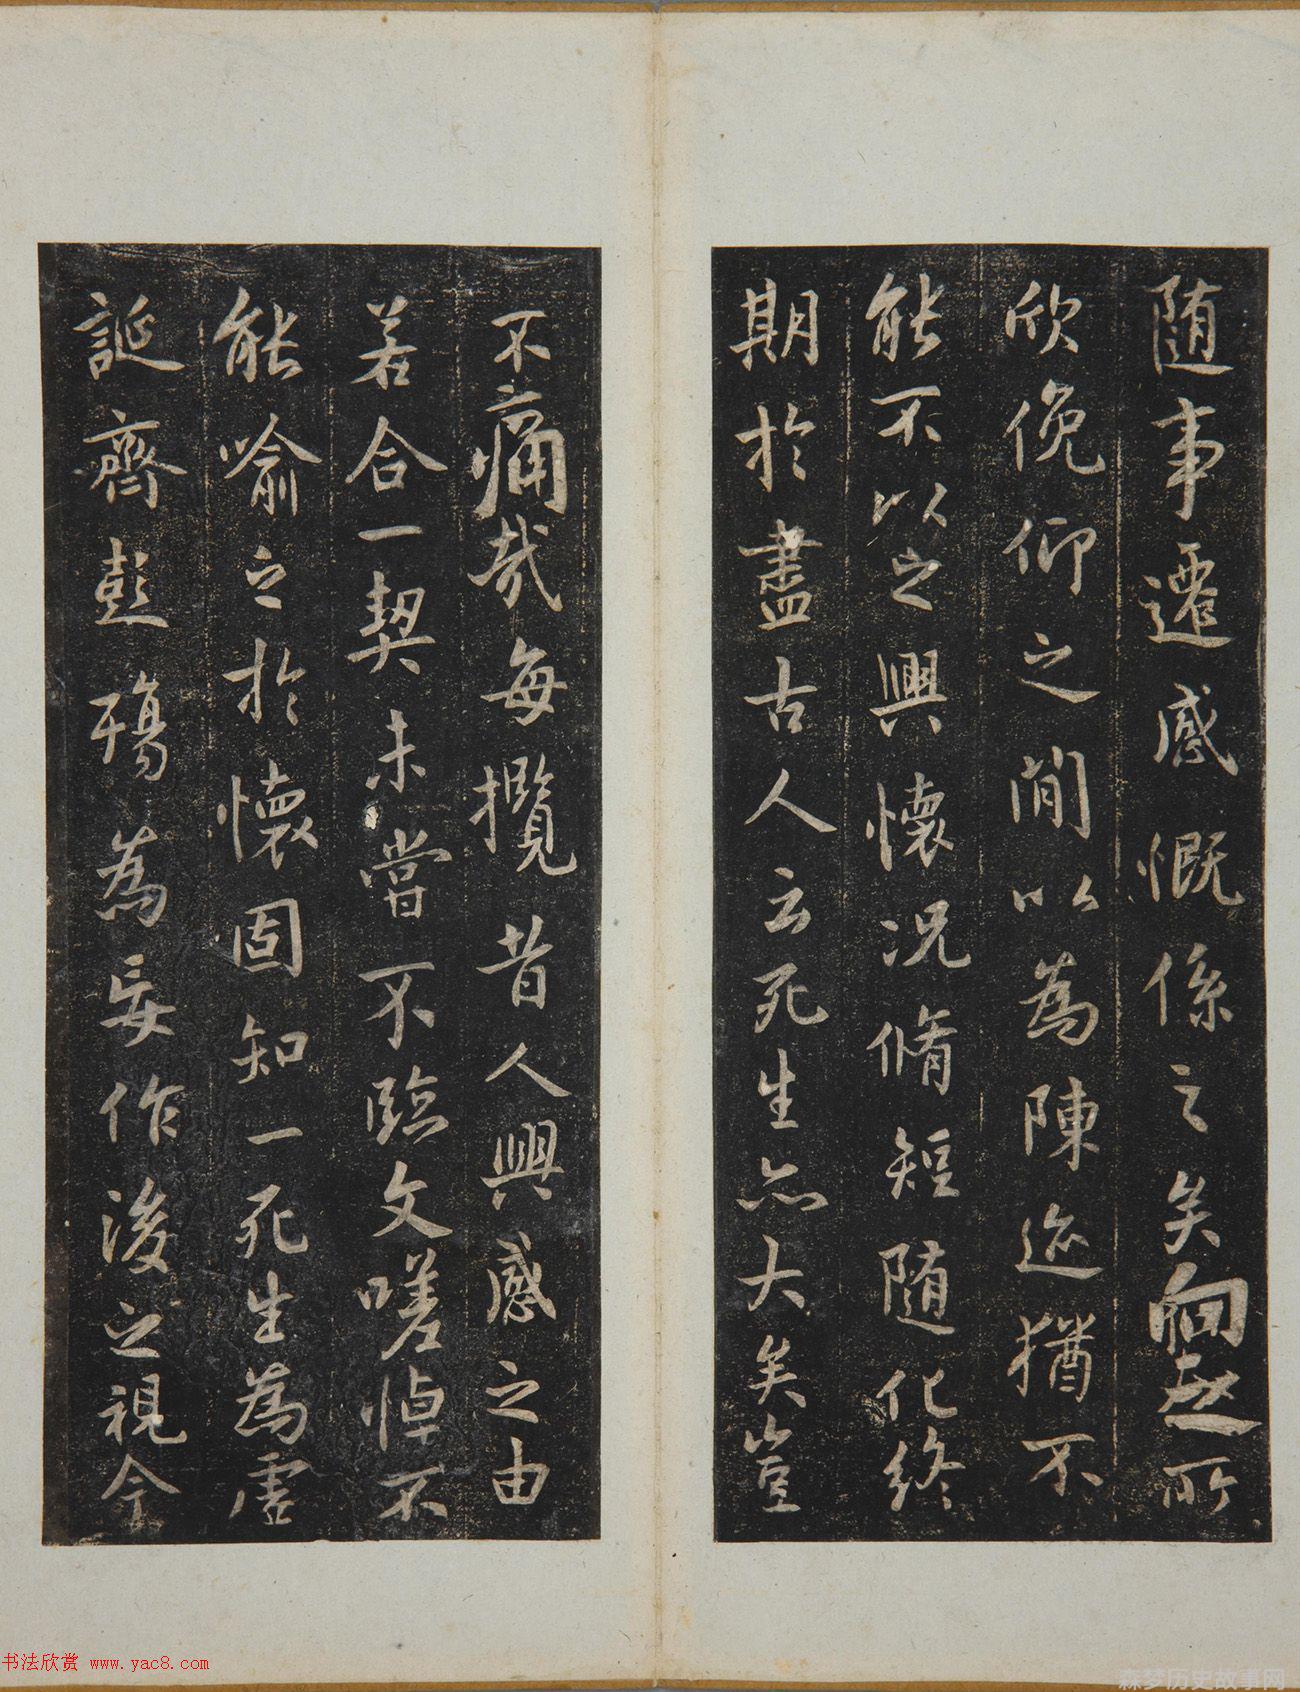 隨事遷感慨係之矣向之所
欣俛仰之閒以為陳迹猶不
能不以之興懷況脩短隨化終
期於盡古人云死生亦大矣豈
不痛哉每攬昔人興感之由
若合一契未嘗不臨文嗟悼不
能喻之於懷固知一死生為虛
誕齊彭殤為妄作後之視今
书法欣赏 www.yac8.com
森梦历史故事网